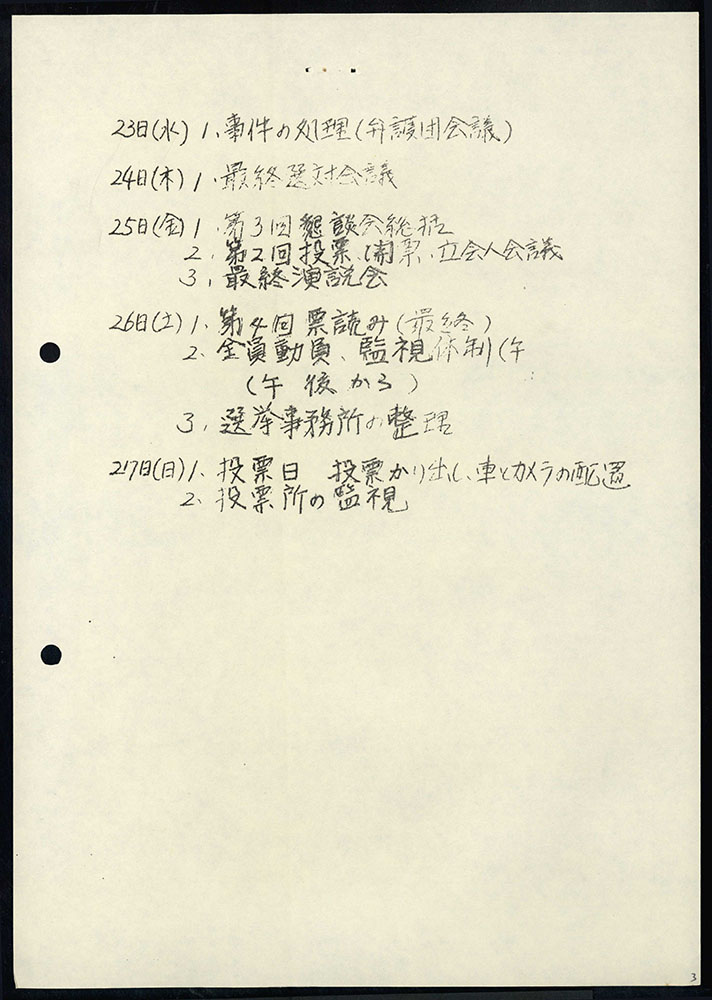 23日(水) 1、事件の処理(弁護団会議)
24日(木) 1、最終選対会議
25日(金) 1、第3回懇談会総括
2、第2回投票、開票、立会人会議
3、最終演説会
26日(土) 1、第4回票読み(最終)
2、全員動員、監視体制(午
(午後から)
3、選挙事務所の整理
27日(日) 1、投票日 投票かり出し、車とカメラの配置
2、投票所の監視
3